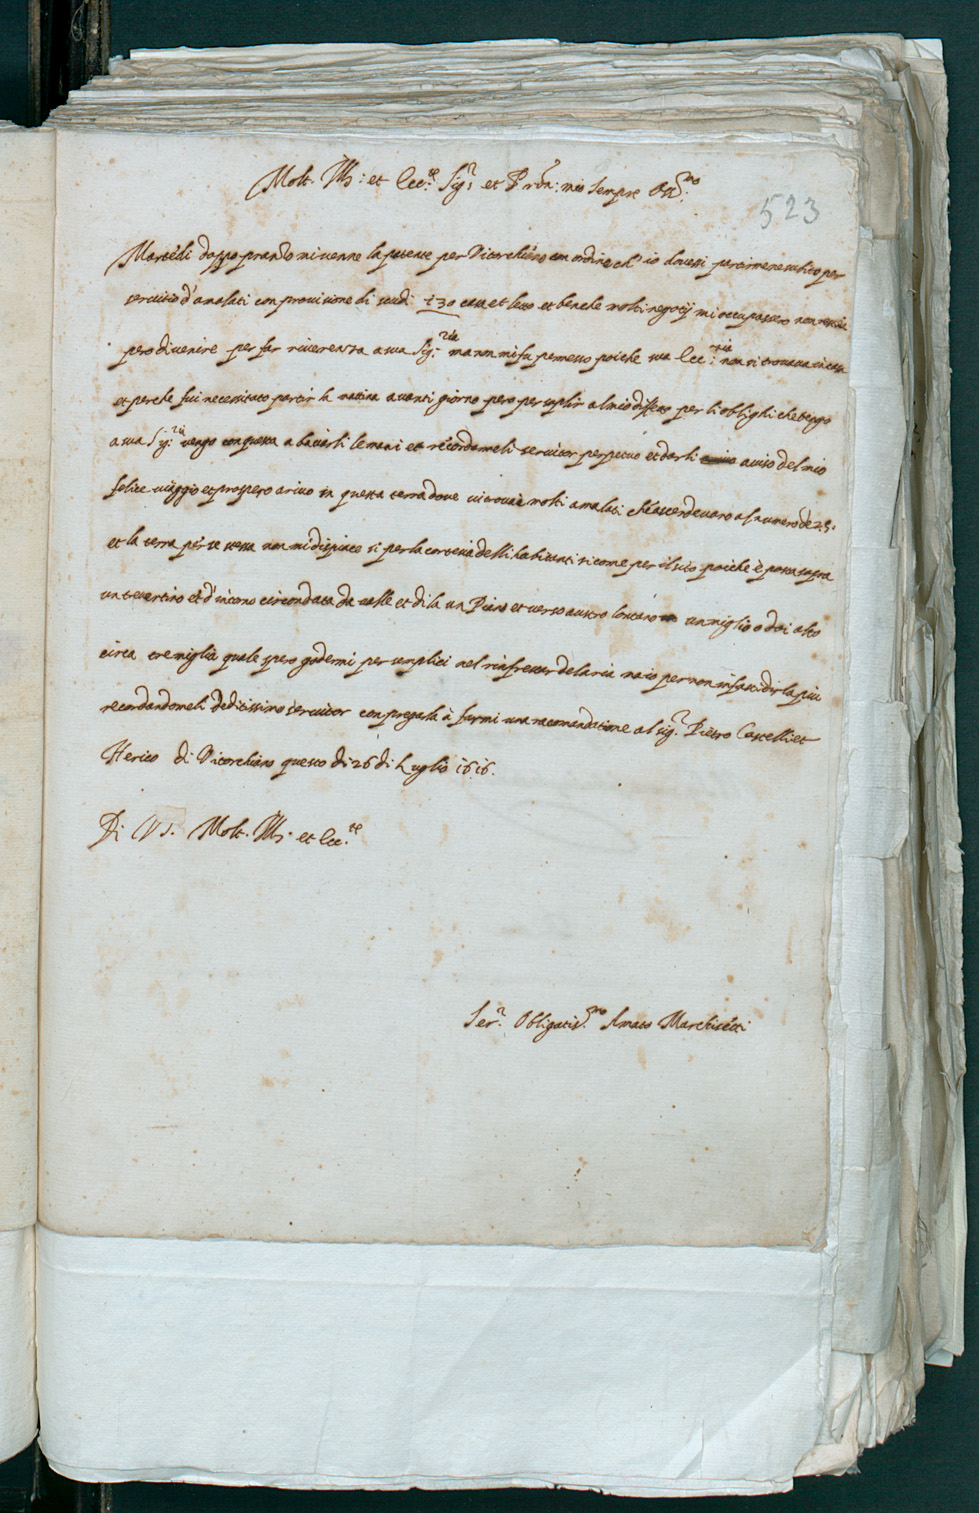 Molt. Ill.: et Ecc.te Sig.r et Pron: mio sempre Oss.mo
523
Martedi doppo pranso mi venne la patente per Vitorchiano con ordine ch' io dovessi partirmene subito per
servitio d'amalati con provisione di scudi 130 casa et letto et benche molti negotij mi occupassero non
pero di venire per far riverenza a sua Sig.ria ma non mi fu permesso poiche sua Ecc.tia non si trovava in casa
et perche fui necessitato partir la matina avanti giorno pero per suplir al mio diffetto per li oblighi che tengo
a sua Sig.ria vengo con questa a baciarli le mani et recordarmeli servitor perpetuo et darli aviso del mio
felice viaggio et prospero arivo in questa terra dove vi trovai molti amalati che ascendevano al numero de 25.
et la terra per se stessa non mi dispiace si per la cortesia delli habitanti si come per il sito poiche è posta sopra
un tevertino et d'intorno circondata da valle et di la un Piano et verso austro lontano un miglio o doi alto
circa tre miglia quale spero godermi per semplici nel rinfrescar del aria ma io per non infastidirla piu
recordandomeli Deditissimo servitor con pregarla à farmi una racomandatione al sig.r Pietro Castelli et
Herico di Vitorchiano questo di 26 di Luglio 1616.
Di VS. Molt. Ill. et Ecc.te
Ser.r Obligatis.mo Amato Marchisetti